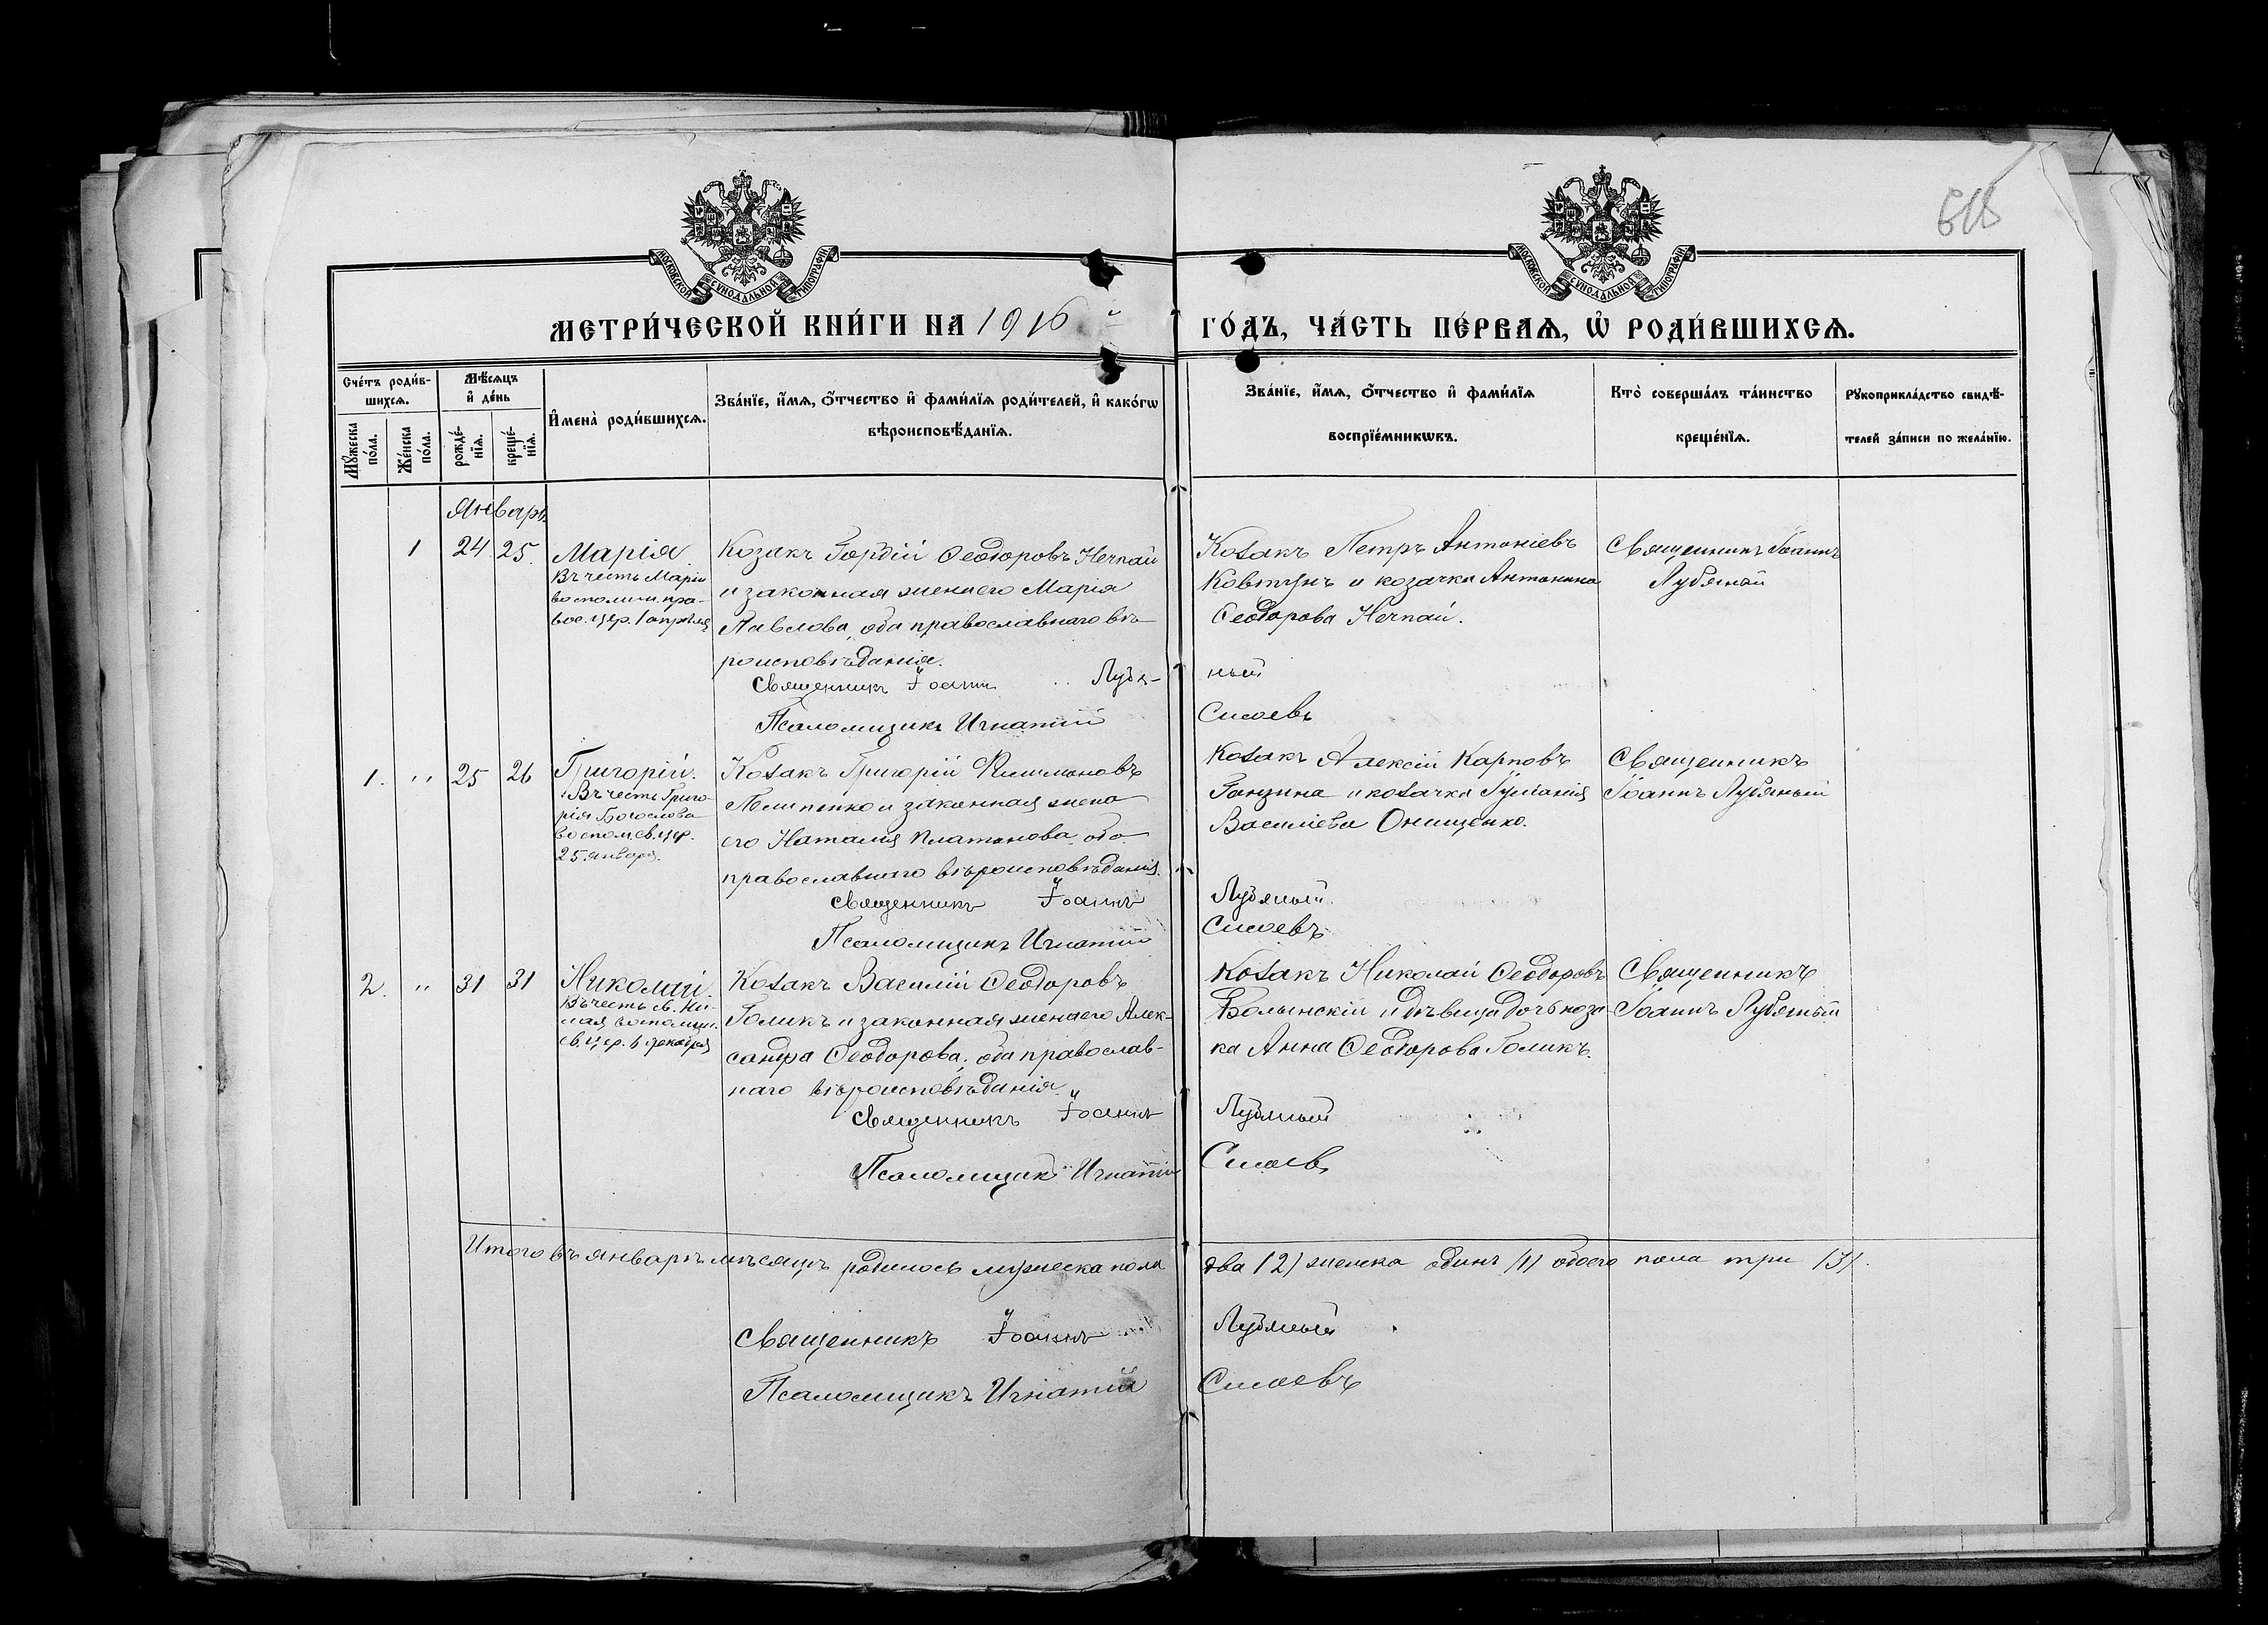 618
МОСКОВСКОЙ СѴНОДАЛЬНОЙ ТИПОГРАФІИ
МОСКОВСКОЙ СѴНОДАЛЬНОЙ ТИПОГРАФІИ
МЕТРИ́ЧЕСКОЙ КНИ́ГИ НА 1916
ГО́ДЪ, ЧА́СТЬ ПЕ́РВАѦ, Ѡ҆ РОДИ́ВШИХСѦ.
Сче́тъ роди́в-
шихсѧ.
Мꙋ́жеска по́ла.
Же́нска по́ла.
Мѣ́сѧцъ
и҆ де́нь
рожде́-
нїѧ.
креще́-
нїѧ.
И҆мена̀ роди́вшихсѧ.
Зва́нїе, и҆́мѧ, ѻ҆́тчество и҆ фами́лїѧ роди́телей, и҆ како́гѡ
вѣроисповѣ́данїѧ.
Зва́нїе, и҆́мѧ, ѻ҆́тчество и҆ фами́лїѧ
воспрїе́мникѡвъ.
Кто̀ соверша́лъ та́инство
креще́нїѧ.
Рꙋкоприкла́дство свидѣ́-
телей за́писи по жела́нїю.
Январь
1 24 25. Марія
Въ честь Маріи
воспомин. пра-
вос. цер. 1 апрѣля
Козакъ Гордій Ѳеодоровъ Нечпай
и законная жена его Марія
Павлова, оба православнаго вѣ-
роисповѣданія.
Священникъ Іоаннъ Лубя-
Псаломщикъ Игнатій
Козакъ Петръ Антоніевъ
Ковтунъ и козачка Антонина
Ѳеодорова Нечпай.
ный
Сисоевъ
Священникъ Іоаннъ
Лубяной
1. " 25 26 Григорій.
Въ честь Григо-
рія Богослова
воспом. св. цер.
25 января.
Козакъ Григорій Филимоновъ
Пилипенко и законная жена
его Наталія Платонова, оба
православнаго вѣроисповѣданія.
Священникъ Іоаннъ
Псаломщикъ Игнатій
Козакъ Алексій Карповъ
Ганзина и козачка Іуліанія
Василіева Онищенко.
Лубяный
Сисоевъ
Священникъ
Іоаннъ Лубяный
2. " 31 31 Николай.
Въ честь св. Ни-
лая воспомин.
св. цер. 6 декабря
Козакъ Василій Ѳеодоровъ
Голикъ и законная жена его Алек-
сандра Ѳеодорова, оба православ-
наго вѣроисповѣданія.
Священникъ Іоаннъ
Псаломщикъ Игнатій
Козакъ Николай Ѳеодоровъ
Волынскій и дѣвица дочь коза-
ка Анна Ѳеодорова Голикъ.
Лубяный
Сисоевъ
Священникъ
Іоаннъ Лубяный
Итого въ январѣ мѣсяцѣ родилось мужеска пола
два /2/ женска одинъ /1/ обоего пола три /3/.
Священникъ Іоаннъ
Лубяный
Псаломщикъ Игнатій
Сисоевъ